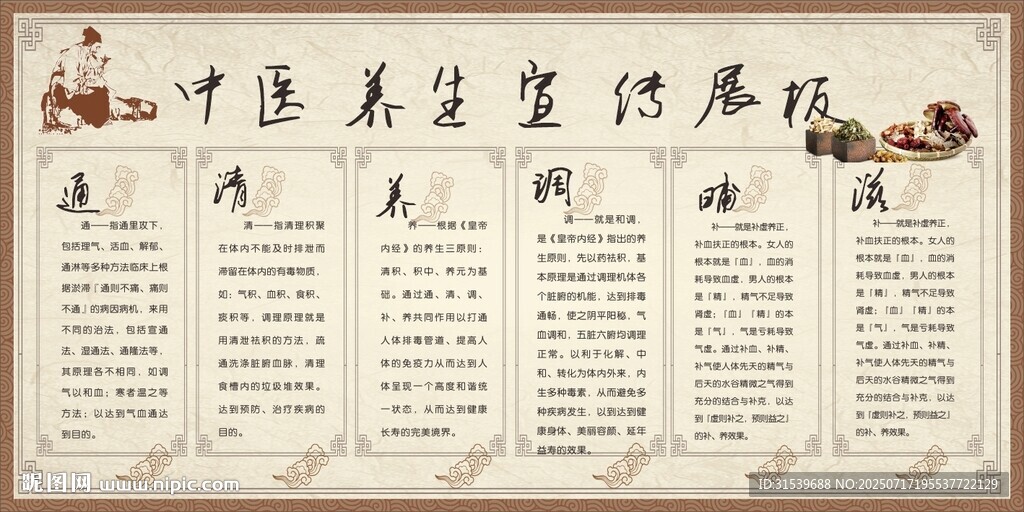 中医养生宣传展板
通
通——指通里攻下，
包括理气、活血、解郁、
通淋等多种方法临床上根
据淤滞『通则不痛、痛则
不通』的病因病机，来用
不同的治法，包括宣通
法、湿通法、通隆法等，
其原理各不相同，如调
气以和血；寒者温之等
方法；以达到气血通达
到目的。
清
清——指清理积聚
在体内不能及时排泄而
滞留在体内的有毒物质，
如：气积、血积、食积、
痰积等，调理原理就是
用清泄祛积的方法，疏
通洗涤脏腑血脉，清理
食槽内的垃圾堆效果。
达到预防、治疗疾病的
目的。
养
养——根据《皇帝
内经》的养生三原则：
清积、积中、养元为基
础。通过通、清、调、
补、养共同作用以打通
人体排毒管道、提高人
体的免疫力从而达到人
体呈现一个高度和谐统
一状态，从而达到健康
长寿的完美境界。
调
调——就是和调，
是《皇帝内经》指出的养
生原则，先以药祛积，基
本原理是通过调理机体各
个脏腑的机能，达到排毒
通畅，使之阴平阳秘，气
血调和，五脏六腑均调理
正常。以利于化解、中
和、转化为体内外来，内
生多种毒素，从而避免多
种疾病发生，以到达到健
康身体、美丽容颜、延年
益寿的效果。
哺
补——就是补虚养正，
补血扶正的根本。女人的
根本就是『血』，血的消
耗导致血虚，男人的根本
是『精』，精气不足导致
肾虚；『血』『精』的本
是『气』，气是亏耗导致
气虚。通过补血、补精、
补气使人体先天的精气与
后天的水谷精微之气得到
充分的结合与补克，以达
到『虚则补之，预则益之』
的补、养效果。
滋
补——就是补虚养正，
补血扶正的根本。女人的
根本就是『血』，血的消
耗导致血虚，男人的根本
是『精』，精气不足导致
肾虚；『血』『精』的本
是『气』，气是亏耗导致
气虚。通过补血、补精、
补气使人体先天的精气与
后天的水谷精微之气得到
充分的结合与补克，以达
到『虚则补之，预则益之』
的补、养效果。
昵图网 www.nipic.com
ID:31539688 NO:20250717195537722129